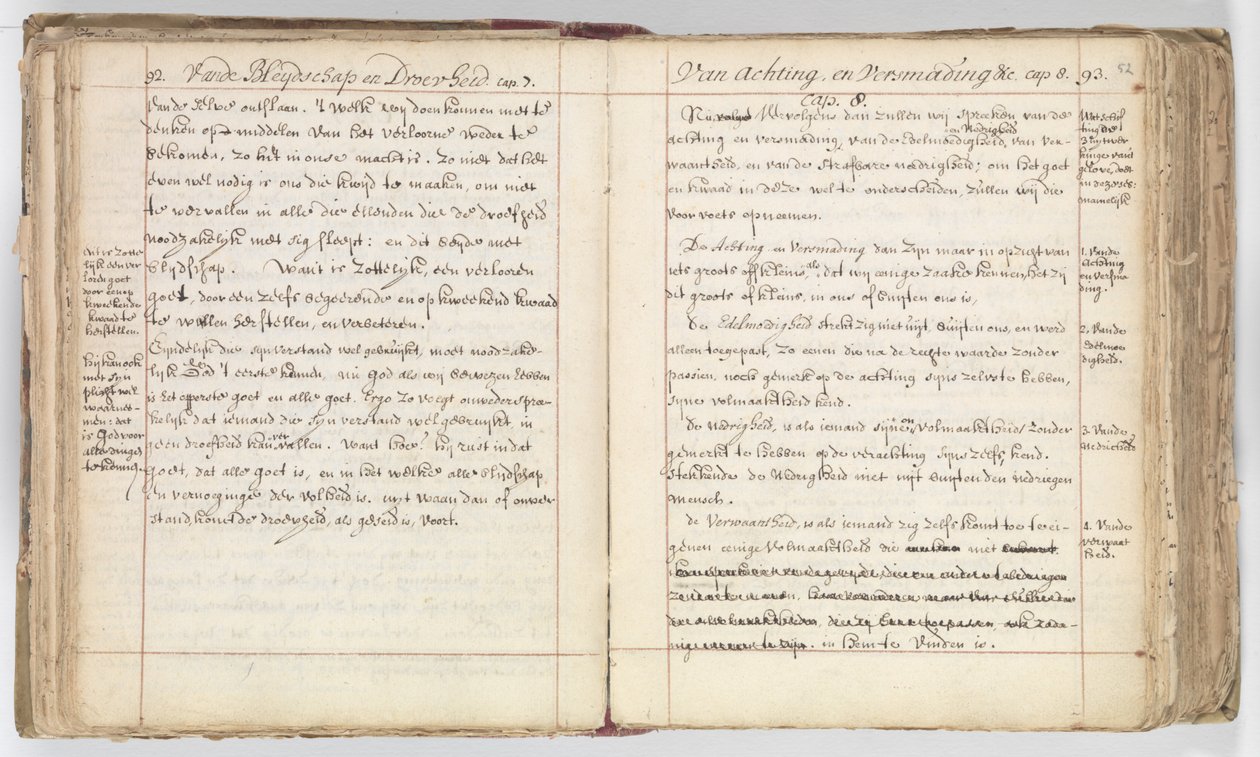 92. Vande Bleydschap en Droevheid. cap. 7.
vande selve ontslaan. 't welk wij doen konnen met te
denken op middelen van het verloorne weder te
bekomen, zo het in onse macht is. zo niet dat het
even wel nodig is ons die kwijd te maaken, om niet
te vervallen in alle die ellenden die de droefheid
noodzakelijk met sig sleept: en dit beyde met
blijdschap. Want is zottelijk, een verlooren
goet, door een zelfs begeerende en op kweekend kwaad
te willen herstellen, en verbeteren.
Eyndelijk die syn verstand wel gebruijkt, moet noodzake-
lijk God 't eerste kennen, nu God als wij bewezen hebben
is het opperste goet en alle goet. Ergo zo volgt onwederspre-
kelijk dat iemand die syn verstand wel gebruijkt, in
geen droefheid kan vervallen. Want hoe? hij rust in dat
goet, dat alle goet is, en in het welke alle blijdschap
en vernoeginge der volheid is. uijt waan dan of onver
stand, komt de droevheid, als geseid is, voort.
dit is zotte
lijk een ver
loren goet
door een op
kweekende
kwaad te
herstellen.
hij kan ook
niet syn
plicht wel
waarnee-
men: dat
is God voor
alle dingen
te kennen.
Van Achting, en Versmading &c. cap 8. 93.
52
cap. 8.
Vervolgens dan zullen wij spreeken van de
achting en versmading, van de Edelmoedigheid, en Nedrigheid van ver-
waantheid, en van de strafbare nedrigheid; om het goet
en kwaad in deze wel te onderscheiden, zullen wij die
voor voets opneemen.
De Achting en Versmading dan zijn maar in opzicht van
iets groots off kleins, als dat wij eenige zaake kennen, het zij
dit groots of kleins, in ons of buijten ons is,
de Edelmoedigheid strekt zig niet uijt, buijten ons, en werd
alleen toegepast, zo eenen die na de rechte waarde zonder
passien, noch gemerk op de achting syns zelfs te hebben,
syne volmaaktheid kend.
de Nedrigheid, is als iemand sijne onvolmaaktheid, zonder
gemerkt te hebben op de verachting syns zelfs, kend.
strekkende de Nedrigheid niet uijt buijten den nedriegen
mensch.
de Verwaantheid, is als iemand zig zelfs komt toe te ei-
genen eenige volmaaktheid die niet
in hem te vinden is.
1. Vande
Achting
en versma-
ding.
2. Vande
Edelmoe-
digheid.
3. Vande
Nedricheid
4. Vande
verwaat
heid.